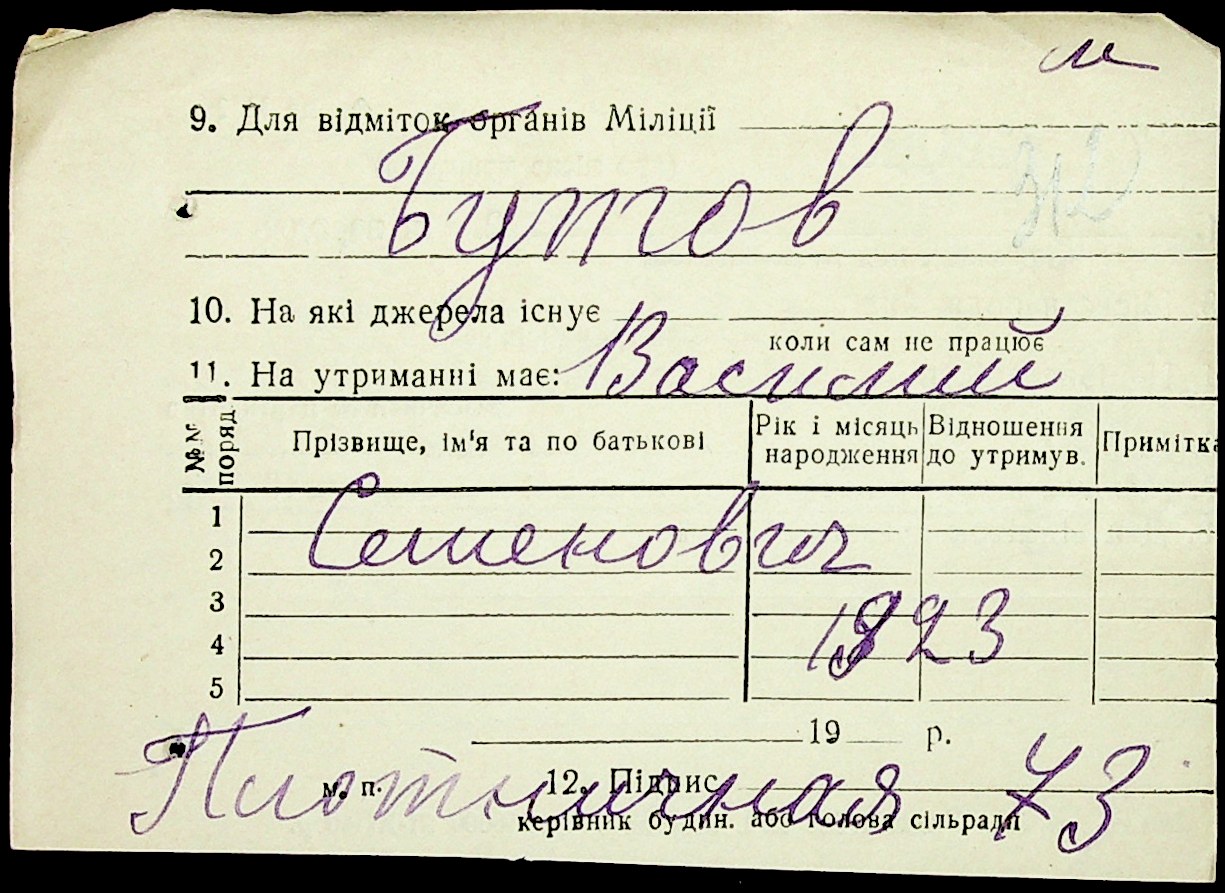 м
9. Для відміток органів Міліції
Бутов
10. На які джерела існує
коли сам не працює
11. На утриманні має:
Василий
№№ поряд. Прізвище, ім'я та по батькові Рік і місяць народження Відношення до утримув. Примітка
1
Семенович
2
3
1923
4
5
19 р.
Плотничная 73
м. п. 12. Підпис
керівник будин. або голова сільради